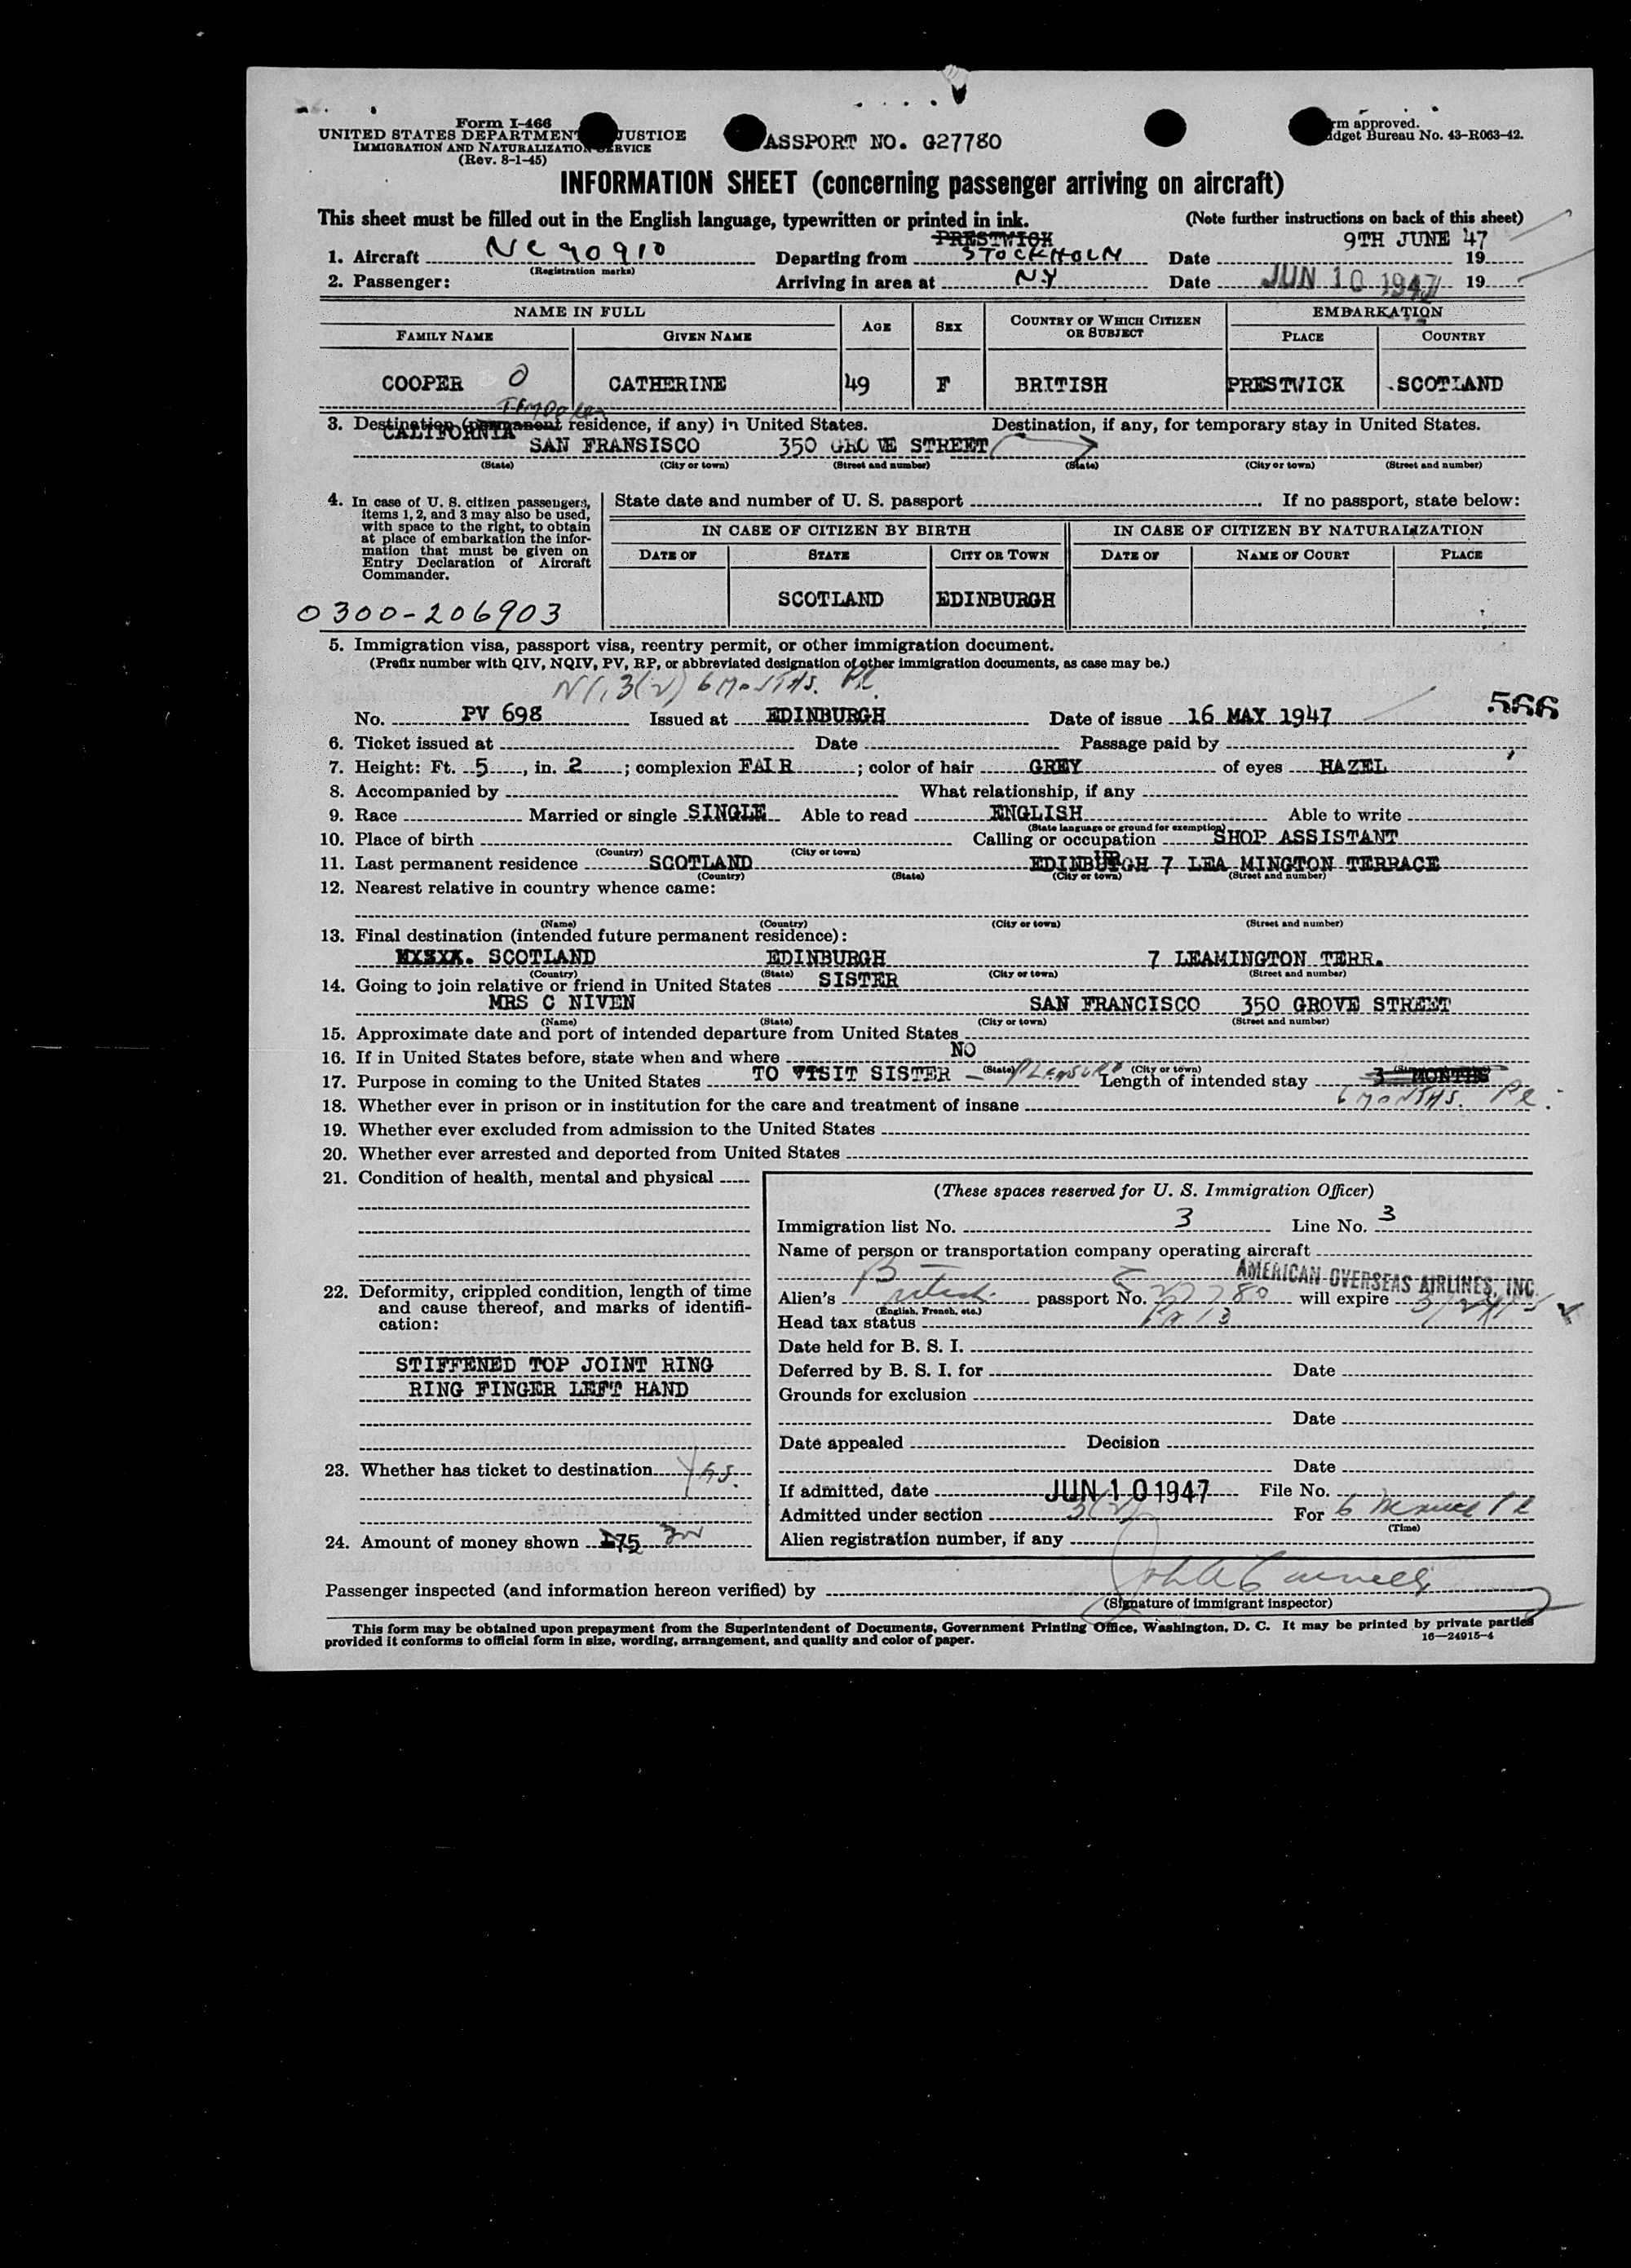 Form I-466
UNITED STATES DEPARTMENT JUSTICE
IMMIGRATION AND NATURALIZATION SERVICE
(Rev. 8-1-45)
ASSPORT NO. G27780
rm approved.
dget Bureau No. 43-R063-42.
INFORMATION SHEET (concerning passenger arriving on aircraft)
This sheet must be filled out in the English language, typewritten or printed in ink. (Note further instructions on back of this sheet)
PRESTWICK 9TH JUNE 47
1. Aircraft NC90910 Departing from STOCKHOLM Date 19
(Registration marks)
2. Passenger: Arriving in area at NY Date JUN 10 1947 19
NAME IN FULL AGE SEX COUNTRY OF WHICH CITIZEN OR SUBJECT EMBARKATION
FAMILY NAME GIVEN NAME PLACE COUNTRY
COOPER O CATHERINE 49 F BRITISH PRESTWICK SCOTLAND
3. Destination (permanent residence, if any) in United States. Destination, if any, for temporary stay in United States.
CALIFORNIA SAN FRANSISCO 350 GRO VE STREET
(State) (City or town) (Street and number) (State) (City or town) (Street and number)
4. In case of U. S. citizen passengers, items 1, 2, and 3 may also be used, with space to the right, to obtain at place of embarkation the information that must be given on Entry Declaration of Aircraft Commander.
State date and number of U. S. passport If no passport, state below:
IN CASE OF CITIZEN BY BIRTH IN CASE OF CITIZEN BY NATURALIZATION
DATE OF STATE CITY OR TOWN DATE OF NAME OF COURT PLACE
SCOTLAND EDINBURGH
0300-206903
5. Immigration visa, passport visa, reentry permit, or other immigration document.
(Prefix number with QIV, NQIV, PV, RP, or abbreviated designation of other immigration documents, as case may be.)
3(2) 6 MONTHS. PL.
566
No. PV 698 Issued at EDINBURGH Date of issue 16 MAY 1947
6. Ticket issued at Date Passage paid by
7. Height: Ft. 5, in. 2; complexion FAIR; color of hair GREY of eyes HAZEL
8. Accompanied by What relationship, if any
9. Race Married or single SINGLE Able to read ENGLISH Able to write
(State language or ground for exemption)
10. Place of birth Calling or occupation SHOP ASSISTANT
(Country) (City or town)
11. Last permanent residence SCOTLAND EDINBURGH 7 LEA MINGTON TERRACE
(Country) (State) (City or town) (Street and number)
12. Nearest relative in country whence came:
(Name) (Country) (City or town) (Street and number)
13. Final destination (intended future permanent residence):
SCOTLAND EDINBURGH 7 LEAMINGTON TERR.
(Country) (State) (City or town) (Street and number)
14. Going to join relative or friend in United States SISTER
MRS C NIVEN SAN FRANCISCO 350 GROVE STREET
(Name) (State) (City or town) (Street and number)
15. Approximate date and port of intended departure from United States
16. If in United States before, state when and where NO
(State) (City or town)
17. Purpose in coming to the United States TO VISIT SISTER - PLEASURE Length of intended stay 3 MONTHS
6 MONTHS. PL.
18. Whether ever in prison or in institution for the care and treatment of insane
19. Whether ever excluded from admission to the United States
20. Whether ever arrested and deported from United States
21. Condition of health, mental and physical
22. Deformity, crippled condition, length of time and cause thereof, and marks of identification:
STIFFENED TOP JOINT RING
RING FINGER LEFT HAND
23. Whether has ticket to destination YES.
24. Amount of money shown 175
(These spaces reserved for U. S. Immigration Officer)
Immigration list No. 3 Line No. 3
Name of person or transportation company operating aircraft
AMERICAN OVERSEAS AIRLINES, INC
Alien's British passport No. 27780 will expire
(English, French, etc.)
Head tax status
Date held for B. S. I.
Deferred by B. S. I. for Date
Grounds for exclusion
Date
Date appealed Decision
Date
If admitted, date JUN 10 1947 File No.
Admitted under section 3(2) For 6
(Time)
Alien registration number, if any
Passenger inspected (and information hereon verified) by
(Signature of immigrant inspector)
This form may be obtained upon prepayment from the Superintendent of Documents, Government Printing Office, Washington, D. C. It may be printed by private parties
provided it conforms to official form in size, wording, arrangement, and quality and color of paper. 16—24915-4